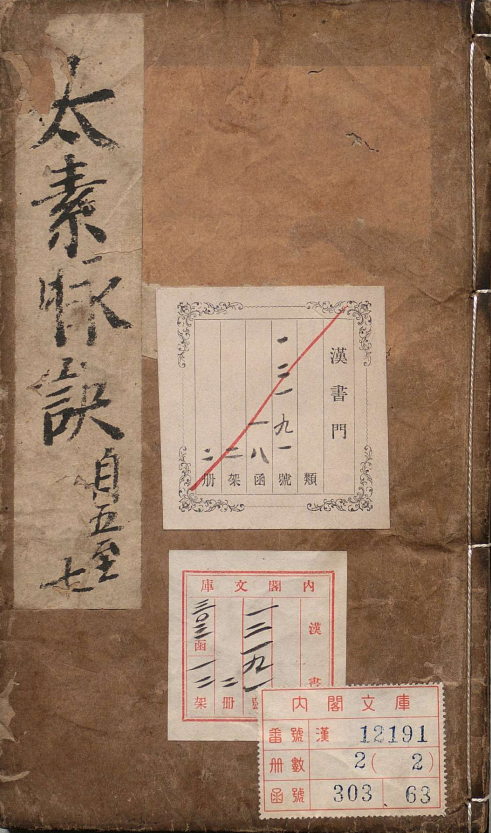 太素脉訣
自五至
七
漢書門
類
一二一九一號
一八函
二架
二册
内閣文庫
漢書
一二一九一號
二册
三〇三函
一二架
内閣文庫
番號 漢 12191
册數 2(2)
函號 303 63